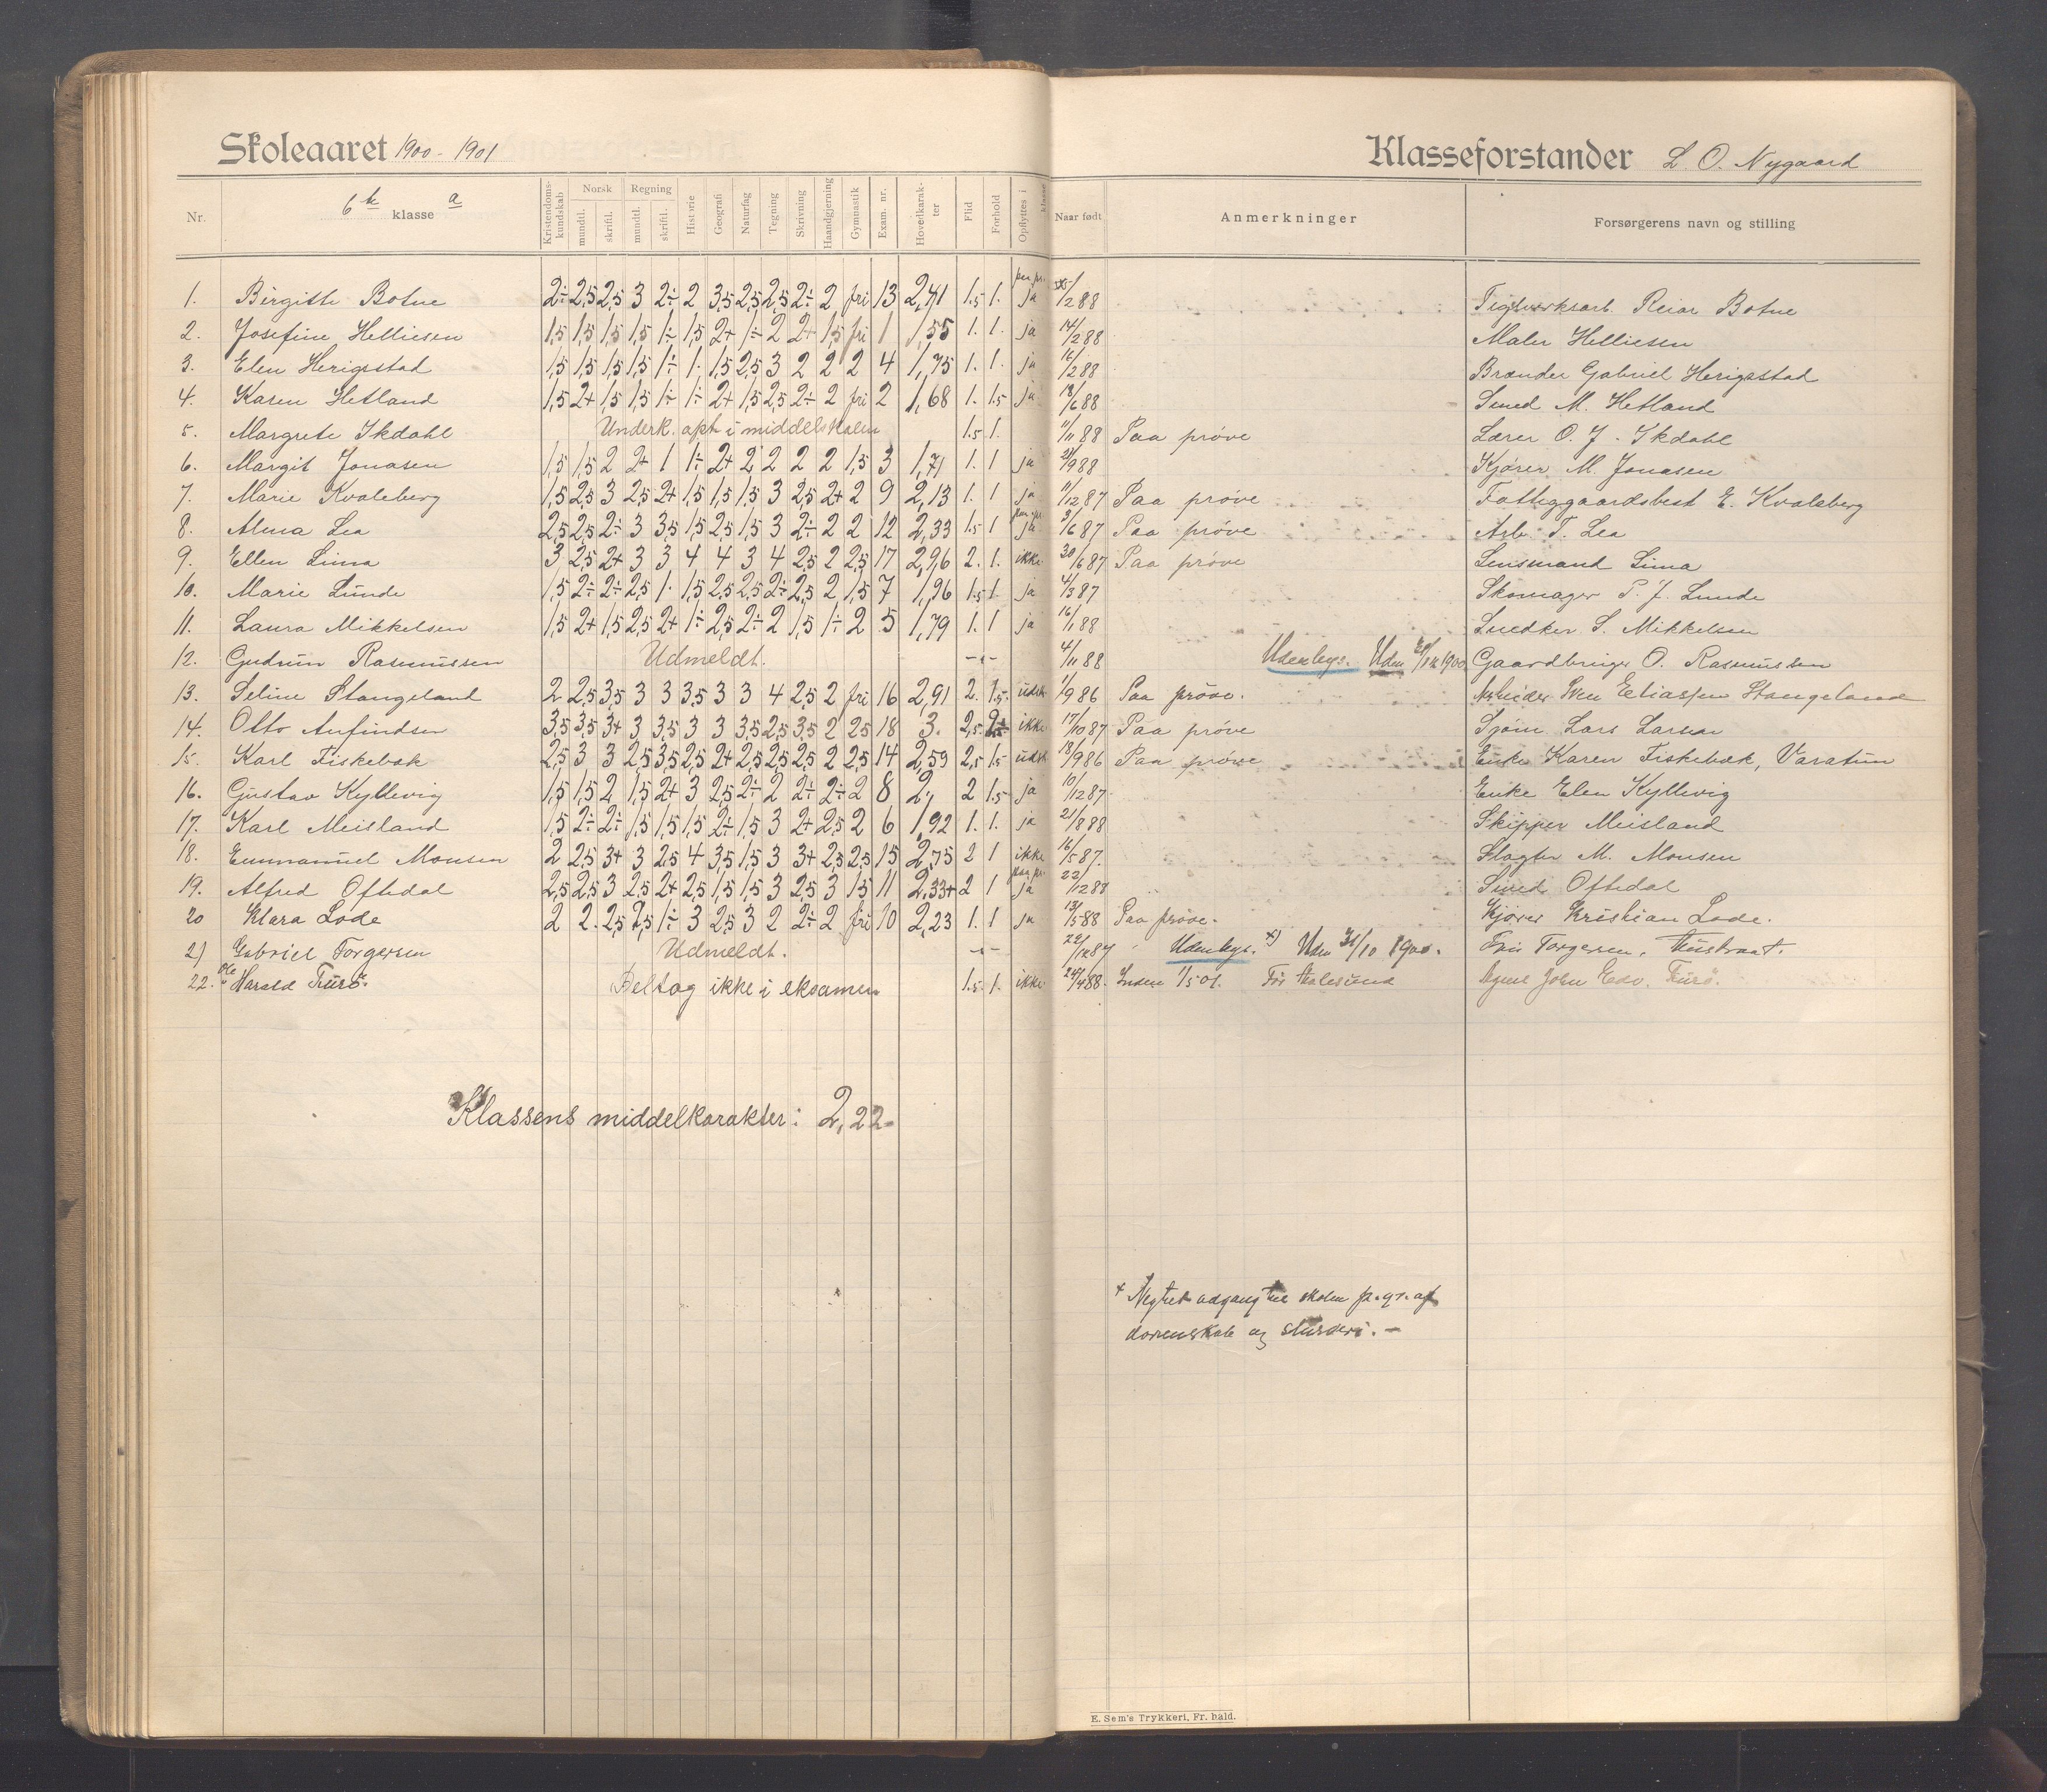 Skoleaaret 1900-1901 Klasseforstander L. O. Nygaard
Nr. 6te klasse a Kristendomskundskab Norsk mundtl. skriftl. Regning mundtl. skriftl. Historie Geografi Naturfag Tegning Skrivning Haandgjerning Gymnastik Exam. nr. Hovedkarakter Flid Forhold Opflyttes i klasse Naar født Anmerkninger Forsørgerens navn og stilling
1. Birgitte Botne 2÷ 2,5 2,5 3 2÷ 2 3,5 2,5 2,5 2÷ 2 fri 13 2,41 1.5 1. ja 1/2 88 Reiar Botne
2. Josefine Helliesen 1,5 1,5 1,5 1,5 1÷ 1,5 2+ 1÷ 2 2+ 1,5 fri 1 1,55 1. 1. ja 14/2 88 Maler Helliesen
3. Elen Herigstad 1,5 1,5 1,5 1,5 1÷ 1. 1,5 2,5 3 2 2 2 4 1,75 1. 1. ja 16/2 88 Brænder Gabriel Herigstad
4. Karen Hetland 1,5 2+ 1,5 1,5 1÷ 1÷ 2+ 1,5 2,5 2÷ 2 fri 2 1,68 1. 1.5 ja 18/6 88 Smed M. Hetland
5. Margrete Skdahl Underk. opt. i middelskolen 1.5 1. 11/11 88 Paa prøve Lærer O. J. Skdahl
6. Margit Jonasen 1,5 1,5 2 2+ 1 1÷ 2+ 2 2 2 2 1,5 3 1,71 1. 1 ja 21/9 88 Kjører M. Jonasen
7. Marie Kvaleberg 1,5 2,5 3 2,5 2+ 1,5 1,5 1,5 3 2,5 2+ 2 9 2,13 1. 1 ja 11/12 87 Paa prøve Fattiggaardsbest E. Kvaleberg
8. Alma Lea 2,5 2,5 2÷ 3 3,5 1,5 2,5 1,5 3 2÷ 2 2 12 2,33 1.5 1 ja 3/6 87 Paa prøve Arb. T. Lea
9. Ellen Lima 3 2,5 2+ 3 3 4 4 3 4 2,5 2 2,5 17 2,96 2. 1. ikke 30/6 87 Paa prøve Lensmand Lima
10. Marie Lunde 1,5 2÷ 2÷ 2,5 1. 1,5 2,5 2,5 2÷ 2,5 2 1,5 7 1,96 1.5 1. ja 4/3 87 Skomager P. J. Lunde
11. Laura Mikkelsen 1,5 2+ 1,5 2,5 2+ 1÷ 2,5 2÷ 2 1,5 1÷ 2 5 1,79 1. 1 ja 16/1 88 Snedker S. Mikkelsen
12. Gudrun Rasmussen Udmeldt. 4/11 88 Udenbys. Udm 1900 Gaardbruger O. Rasmussen
13. Seline Stangeland 2 2,5 3,5 3 3 3,5 3 3 4 2,5 2 fri 16 2,91 2. 1.5 udsk 1/9 86 Paa prøve. Arbeider Sven Eliassen Stangeland
14. Otto Anfindsen 3,5 3,5 3+ 3 3,5 3 3 3,5 2,5 3,5 2 2,5 18 3. 2,5 2÷ ikke 17/10 87 Paa prøve Sjøm Lars Larsen
15. Karl Fiskebæk 2,5 3 3 2,5 3,5 2,5 2+ 2,5 2,5 2,5 2 2,5 14 2,59 2,5 1.5 udsk 18/9 86 Paa prøve Enke Karen Fiskebæk, Varatun
16. Gustav Kyllevig 1,5 1,5 2 1,5 2+ 3 2,5 2÷ 2 2÷ 2÷ 2 8 2,1 2 1.5 ja 10/12 87 Enke Elen Kyllevig
17. Karl Meisland 1,5 2÷ 2÷ 1,5 1,5 1,5 2÷ 1,5 3 2+ 2,5 2 6 1,92 1. 1. ja 21/8 88 Skipper Meisland
18. Emmanuel Monsen 2 2,5 3+ 3 2,5 4 3,5 1,5 3 3+ 2,5 2,5 15 2,75 2 1 ikke 16/5 87. Slagter M. Monsen
19. Alfred Oftedal 2,5 2,5 3 2,5 2+ 2,5 1,5 1,5 3 2,5 3 1,5 11 2,33+ 2 1 ja 22/12 87 Smed Oftedal
20 Klara Lode 2 2. 2,5 2,5 1÷ 3 2,5 3 2 2÷ 2 fri 10 2,23 1. 1 ja 13/5 88 Paa prøve. Kjører Kristian Lode.
21 Gabriel Torgersen Udmeldt. 22/12 87 Udenbys. x) Udm 31/10 1900. Torgersen,
22. Ole Harald Furø. Deltog ikke i eksamen 1.5. 1. ikke 24/4 88. Inden 1/5 01. Fr. Aalesund Agent John Edv. Furø.
Klassens middelkarakter: 2,22
x Negtet adgang til skolen p. gr. af
dovenskab og slusseri. –
E. Sem's Trykkeri, Fr. hald.